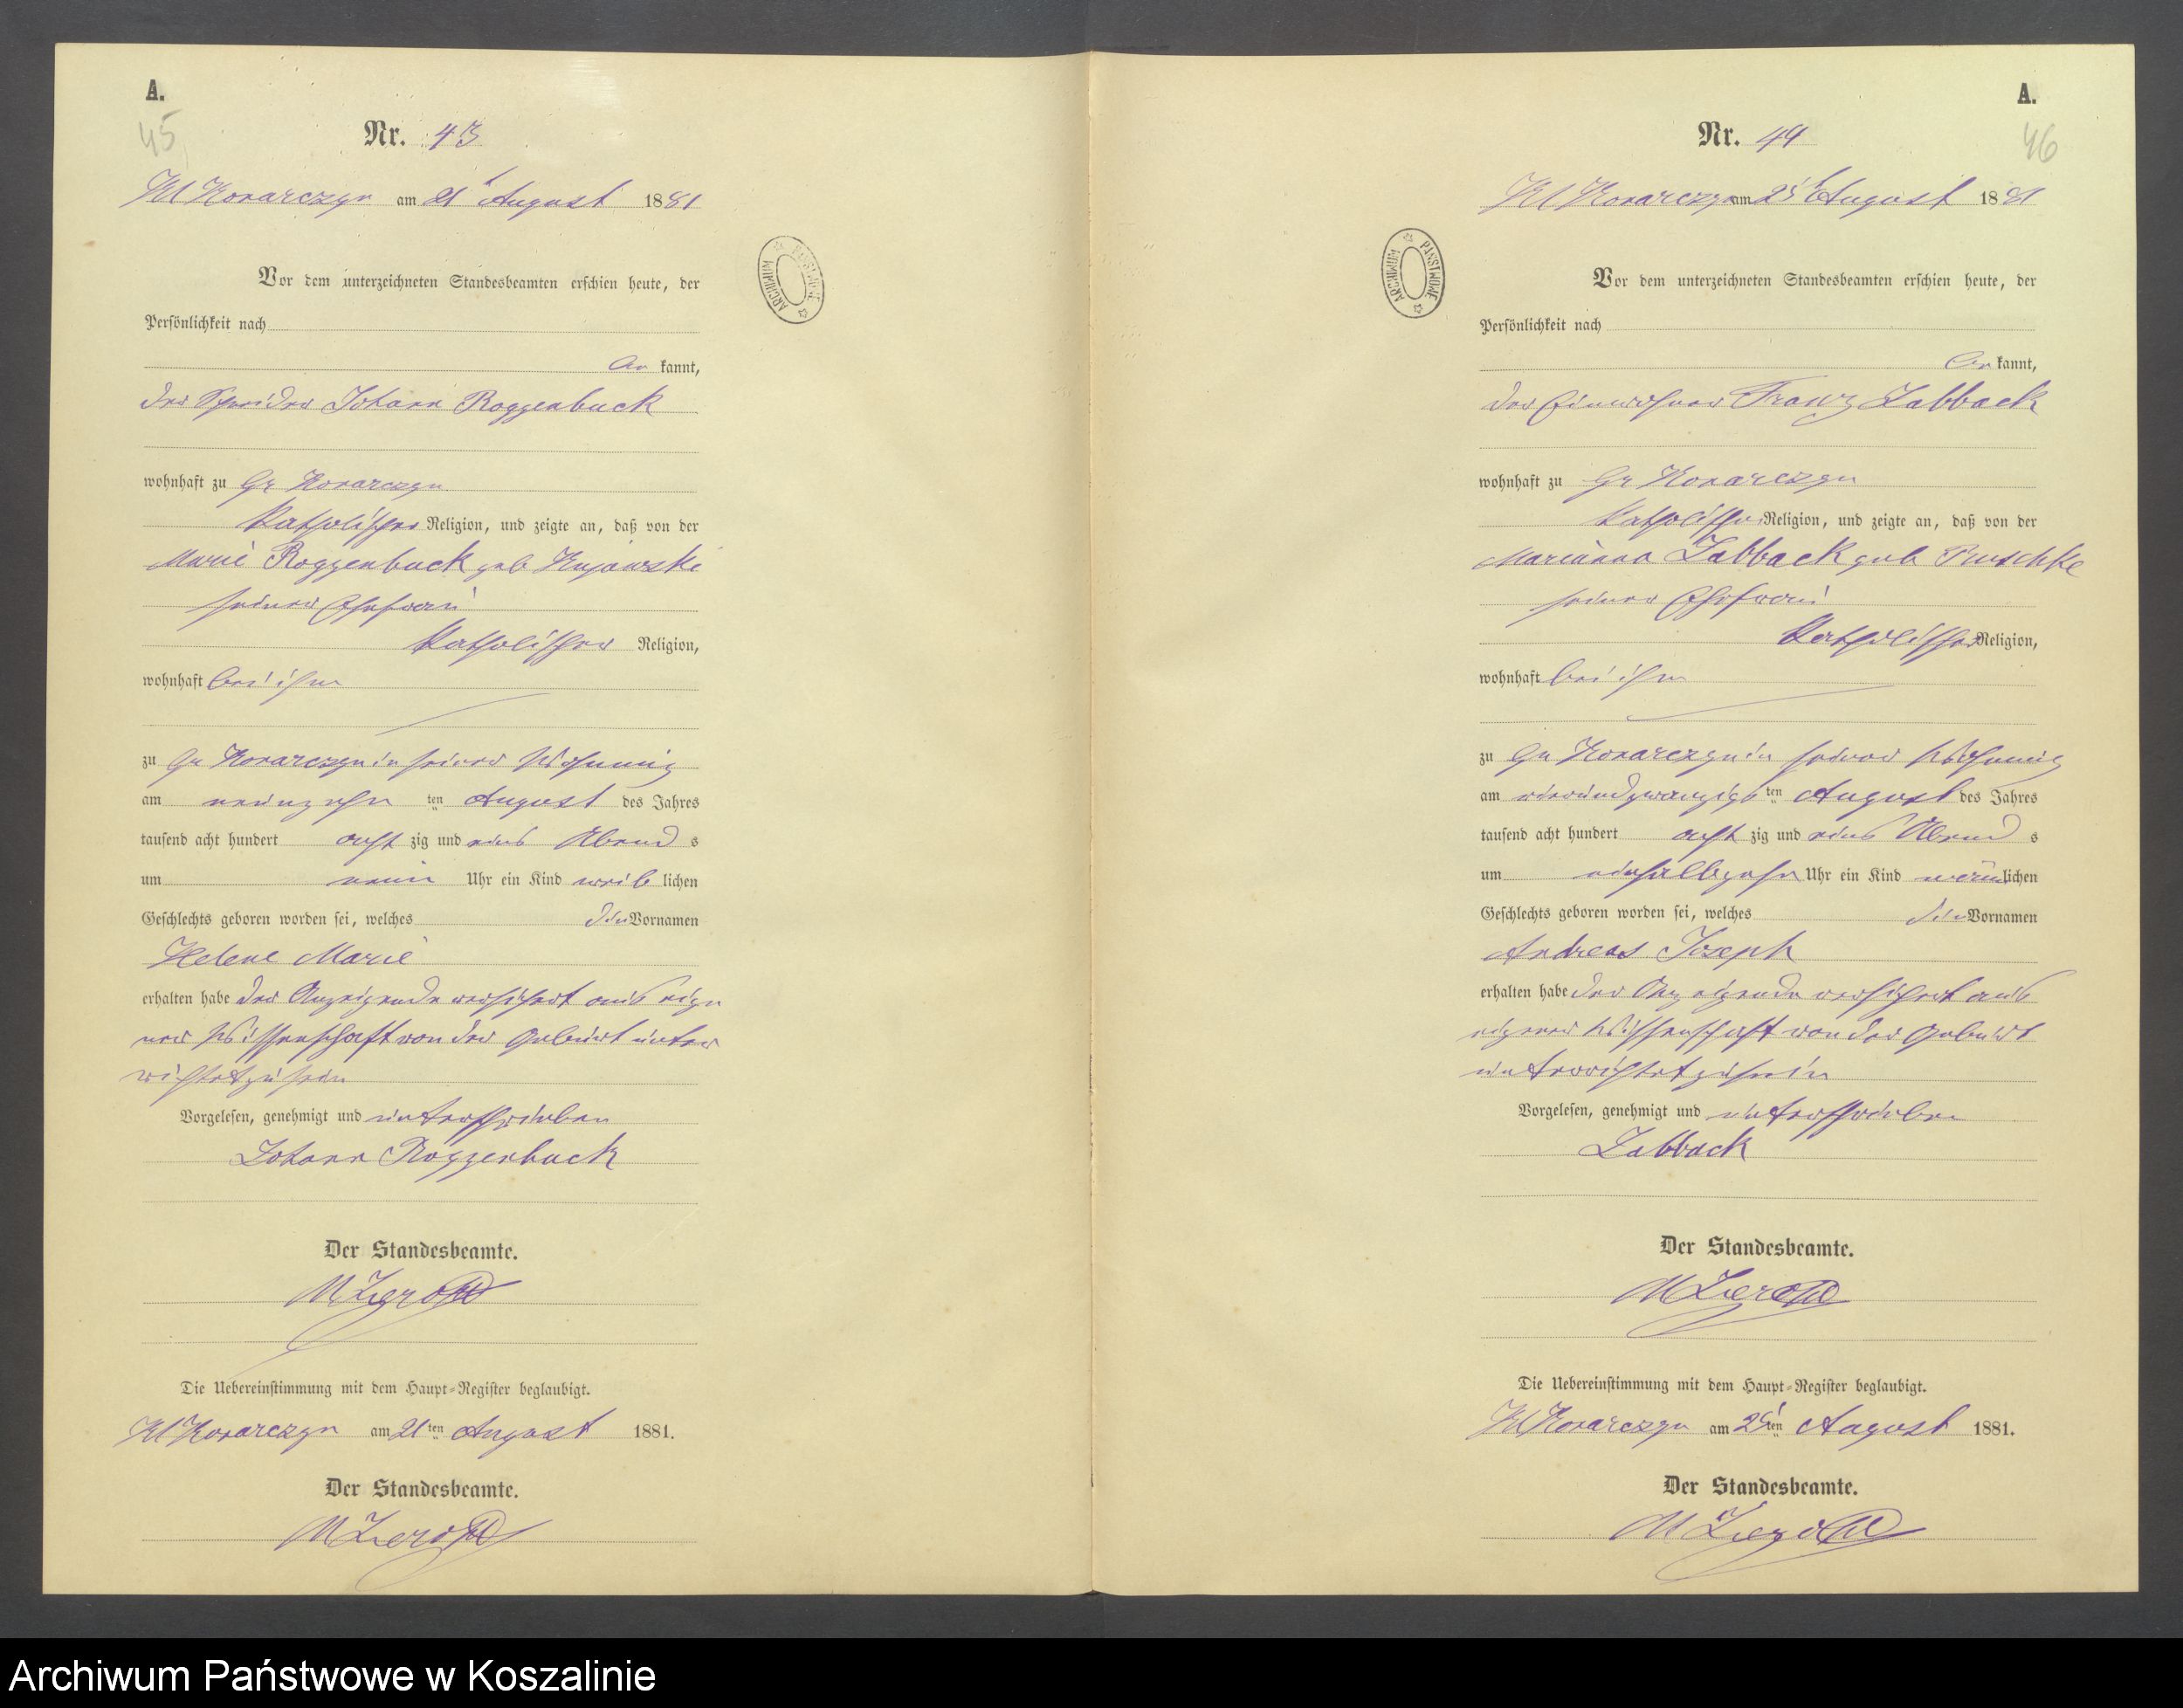 A.
45
Nr. 43
Kl Konarczyn am 21t August 1881
ARCHIWUM PAŃSTWOWE
Vor dem unterzeichneten Standesbeamten erschien heute, der
Persönlichkeit nach
be kannt,
der Schneider Johann Roggenbuck
wohnhaft zu Gr Konarczyn
katholischer Religion, und zeigte an, daß von der
Marie Roggenbuck geb Kujawski
seiner Ehefrau
katholischer Religion,
wohnhaft bei ihm
zu Gr Konarczyn in seiner Wohnung
am neunzehn ten August des Jahres
tausend acht hundert acht zig und eins Abend s
um neun Uhr ein Kind weib lichen
Geschlechts geboren worden sei, welches die Vornamen
Helene Marie
erhalten habe der Anzeigende versichert aus eige
ner Wissenschaft von der Geburt unter
richtet zu sein
Vorgelesen, genehmigt und unterschrieben
Johann Roggenbuck
Der Standesbeamte.
Die Uebereinstimmung mit dem Haupt-Register beglaubigt.
Kl Konarczyn am 21ten August 1881.
Der Standesbeamte.
A.
46
Nr. 44
Kl Konarczyn am 25t August 1881
ARCHIWUM PAŃSTWOWE
Vor dem unterzeichneten Standesbeamten erschien heute, der
Persönlichkeit nach
be kannt,
der Einwohner Franz Zabback
wohnhaft zu Gr Konarczyn
katholischer Religion, und zeigte an, daß von der
Marianna Zabback geb
seiner Ehefrau
katholischer Religion,
wohnhaft bei ihm
zu Gr Konarczyn in seiner Wohnung
am vierundzwanzigs ten August des Jahres
tausend acht hundert acht zig und eins Abend s
um einhalbzehn Uhr ein Kind männ lichen
Geschlechts geboren worden sei, welches die Vornamen
Andreas Joseph
erhalten habe der Anzeigende versichert aus
eigener Wissenschaft von der Geburt
unterrichtet zu sein
Vorgelesen, genehmigt und unterschrieben
Zabback
Der Standesbeamte.
Die Uebereinstimmung mit dem Haupt-Register beglaubigt.
Kl Konarczyn am 25ten August 1881.
Der Standesbeamte.
Archiwum Państwowe w Koszalinie